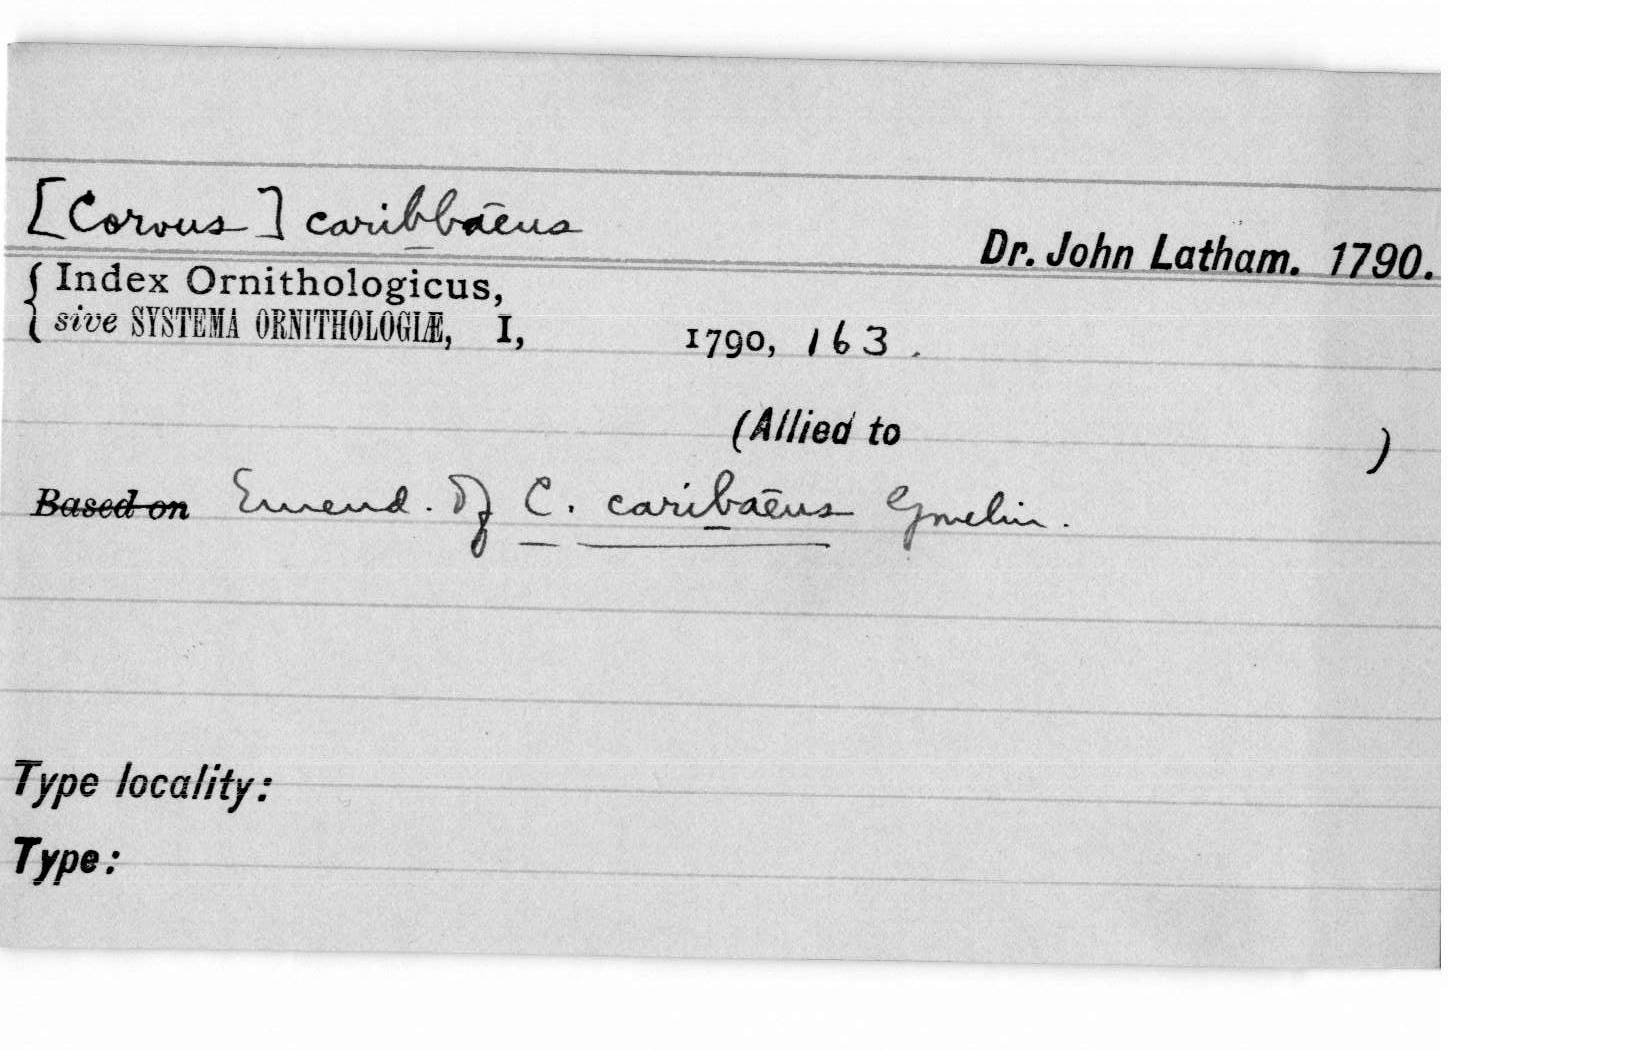 [Corvus] caribbāeus
Dr. John Latham. 1790.
{ Index Ornithologicus,
sive SYSTEMA ORNITHOLOGIÆ, I, 1790, 163.
(Allied to )
Based on Emend. Of C. caribāeus Gmelin.
Type locality:
Type: